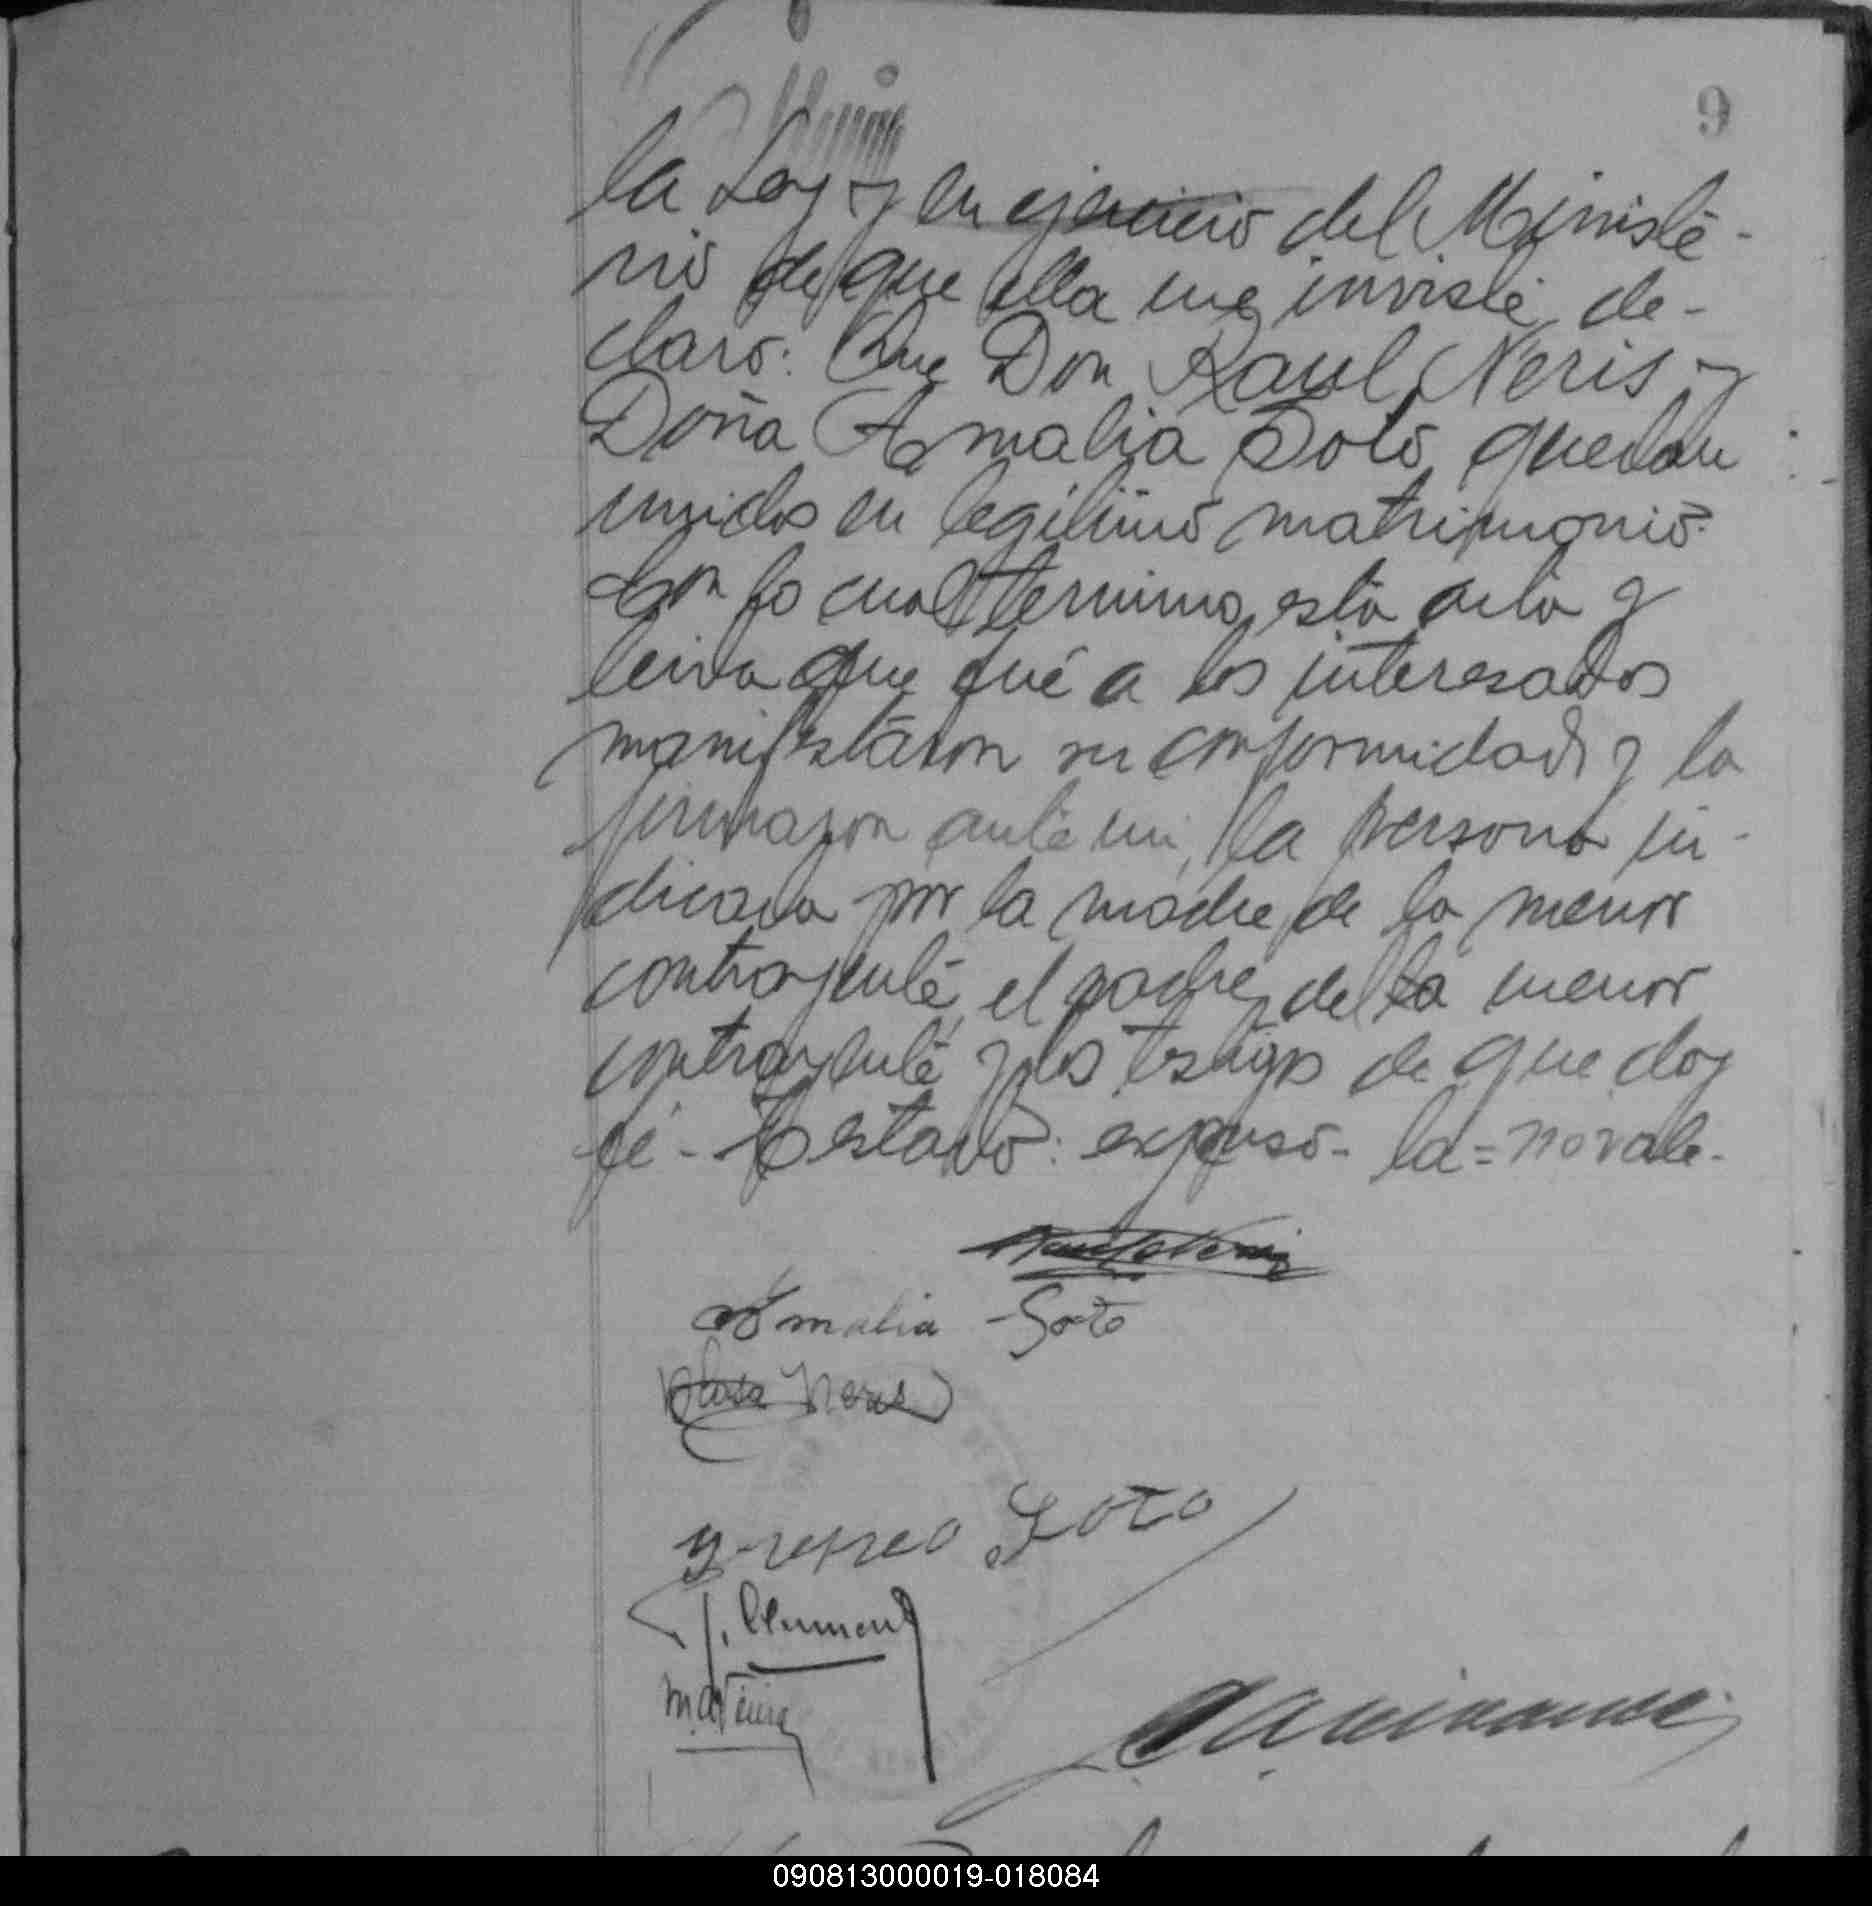 9
la Ley y en ejercicio del Ministe-
rio de que ella me inviste, de-
claro: Que Don Raul Neris y
Doña Amalia Soto quedan
unidos en legitimo matrimonio.
Con lo cual termino esta acta y
leida que fué a los interesados
manifestaron su conformidad y la
firmaron ante mi, la persona in-
dicada por la madre de la menor
contrayente, el padre de la menor
contrayente y los testigos de que doy
fé - Testado: expuso - la = no vale -
Amalia Soto
Neris
Soto
J. Clermont
090813000019-018084